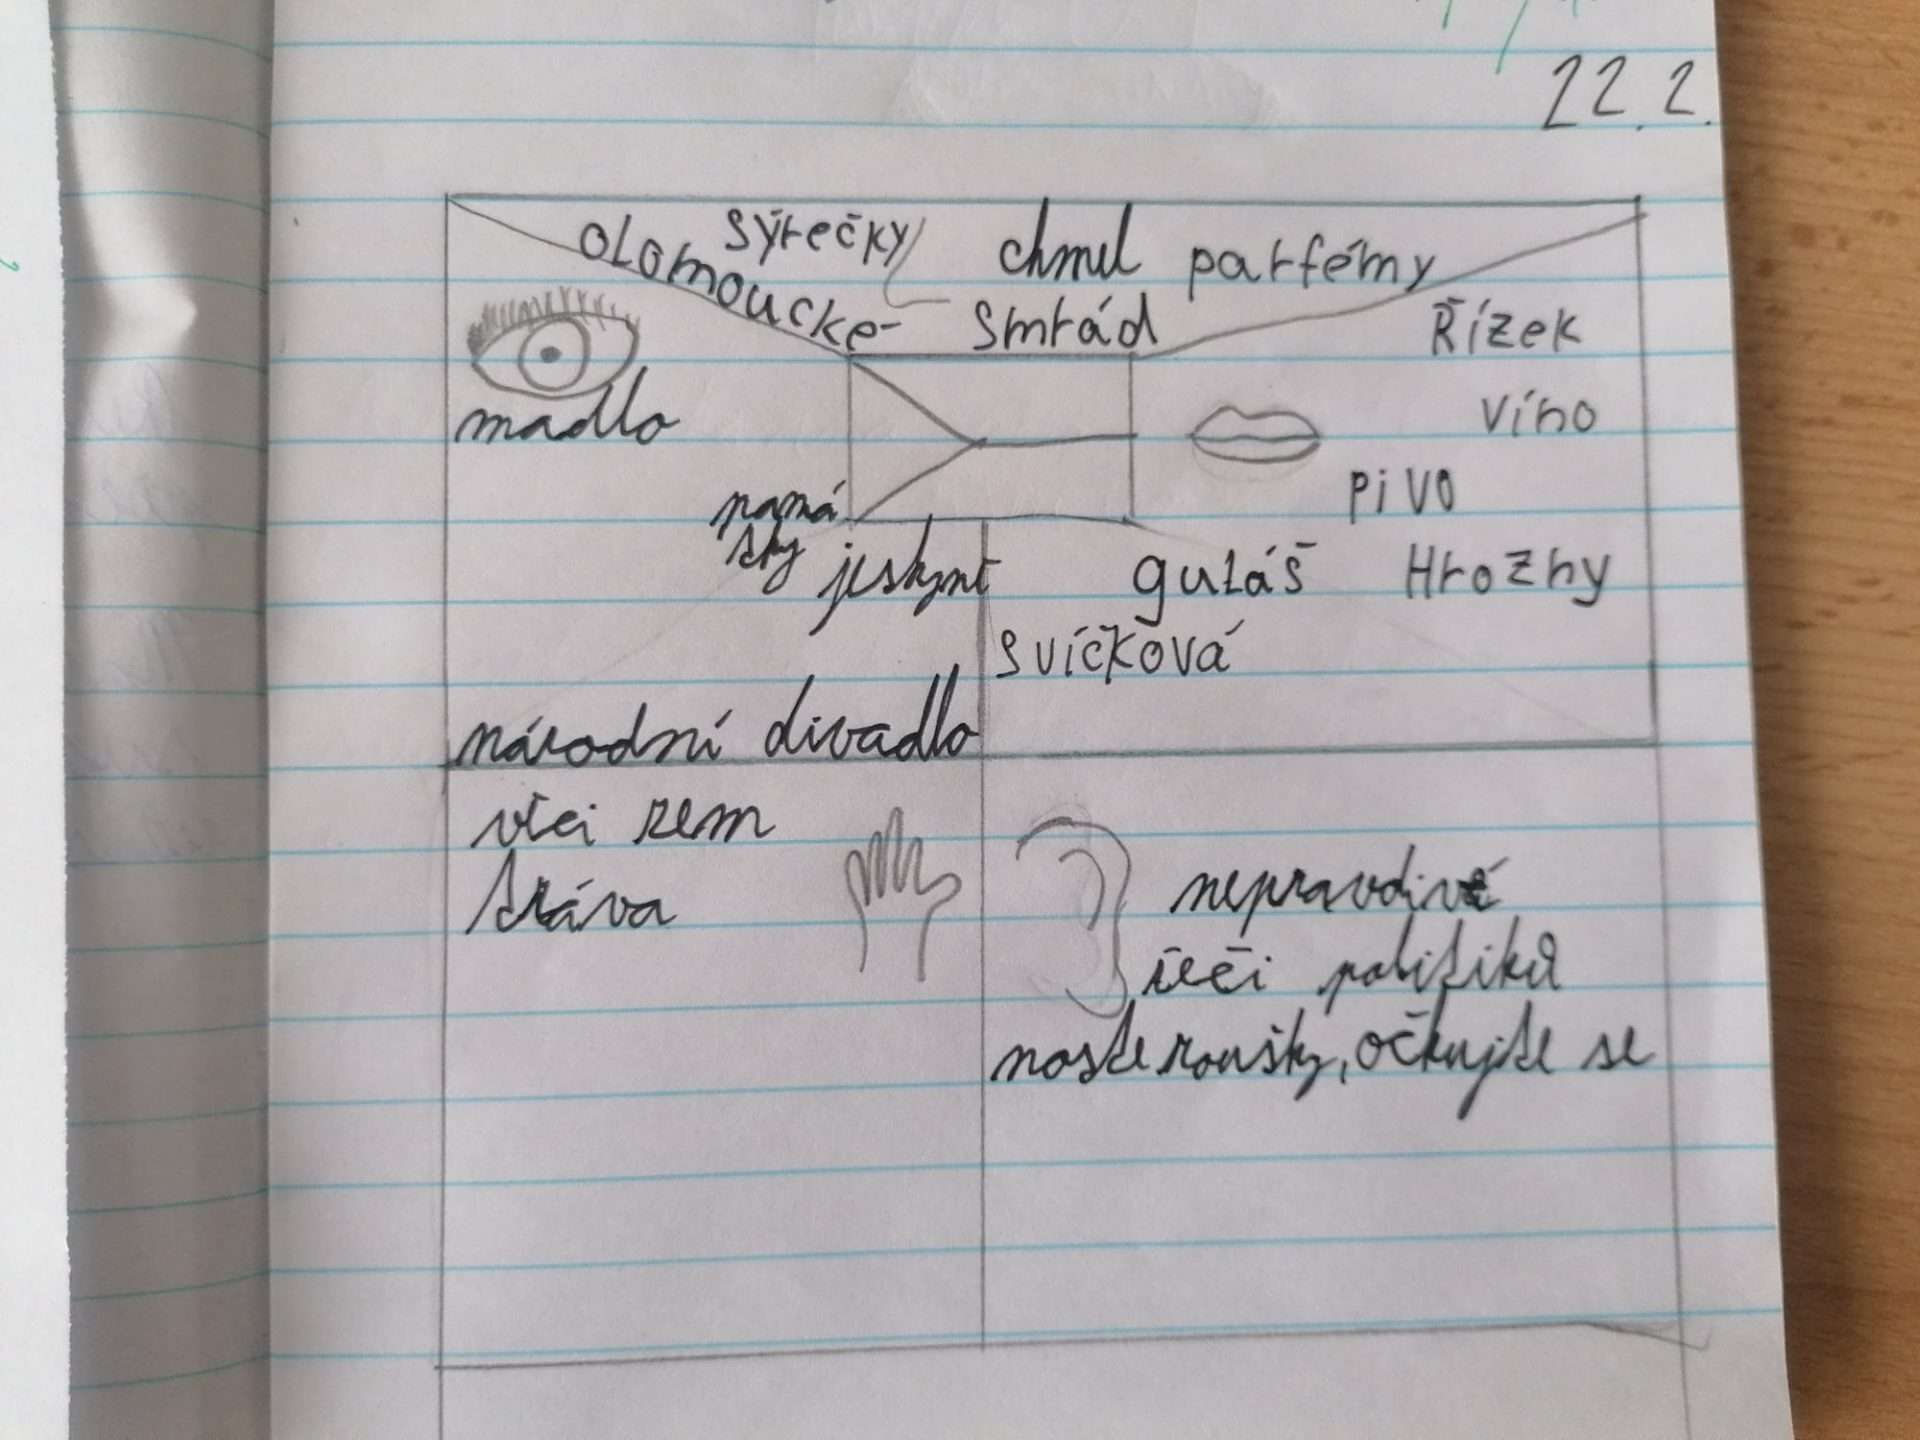 22.2.
olomoucké syrečky chmel parfémy
smrád
Řízek
madlo
víno
pivo
památky
jeskyně
guláš
Hrozny
svíčková
národní divadlo
vlci zem
tráva
nepravdivé
řeči politiků
noste roušky, očkujte se